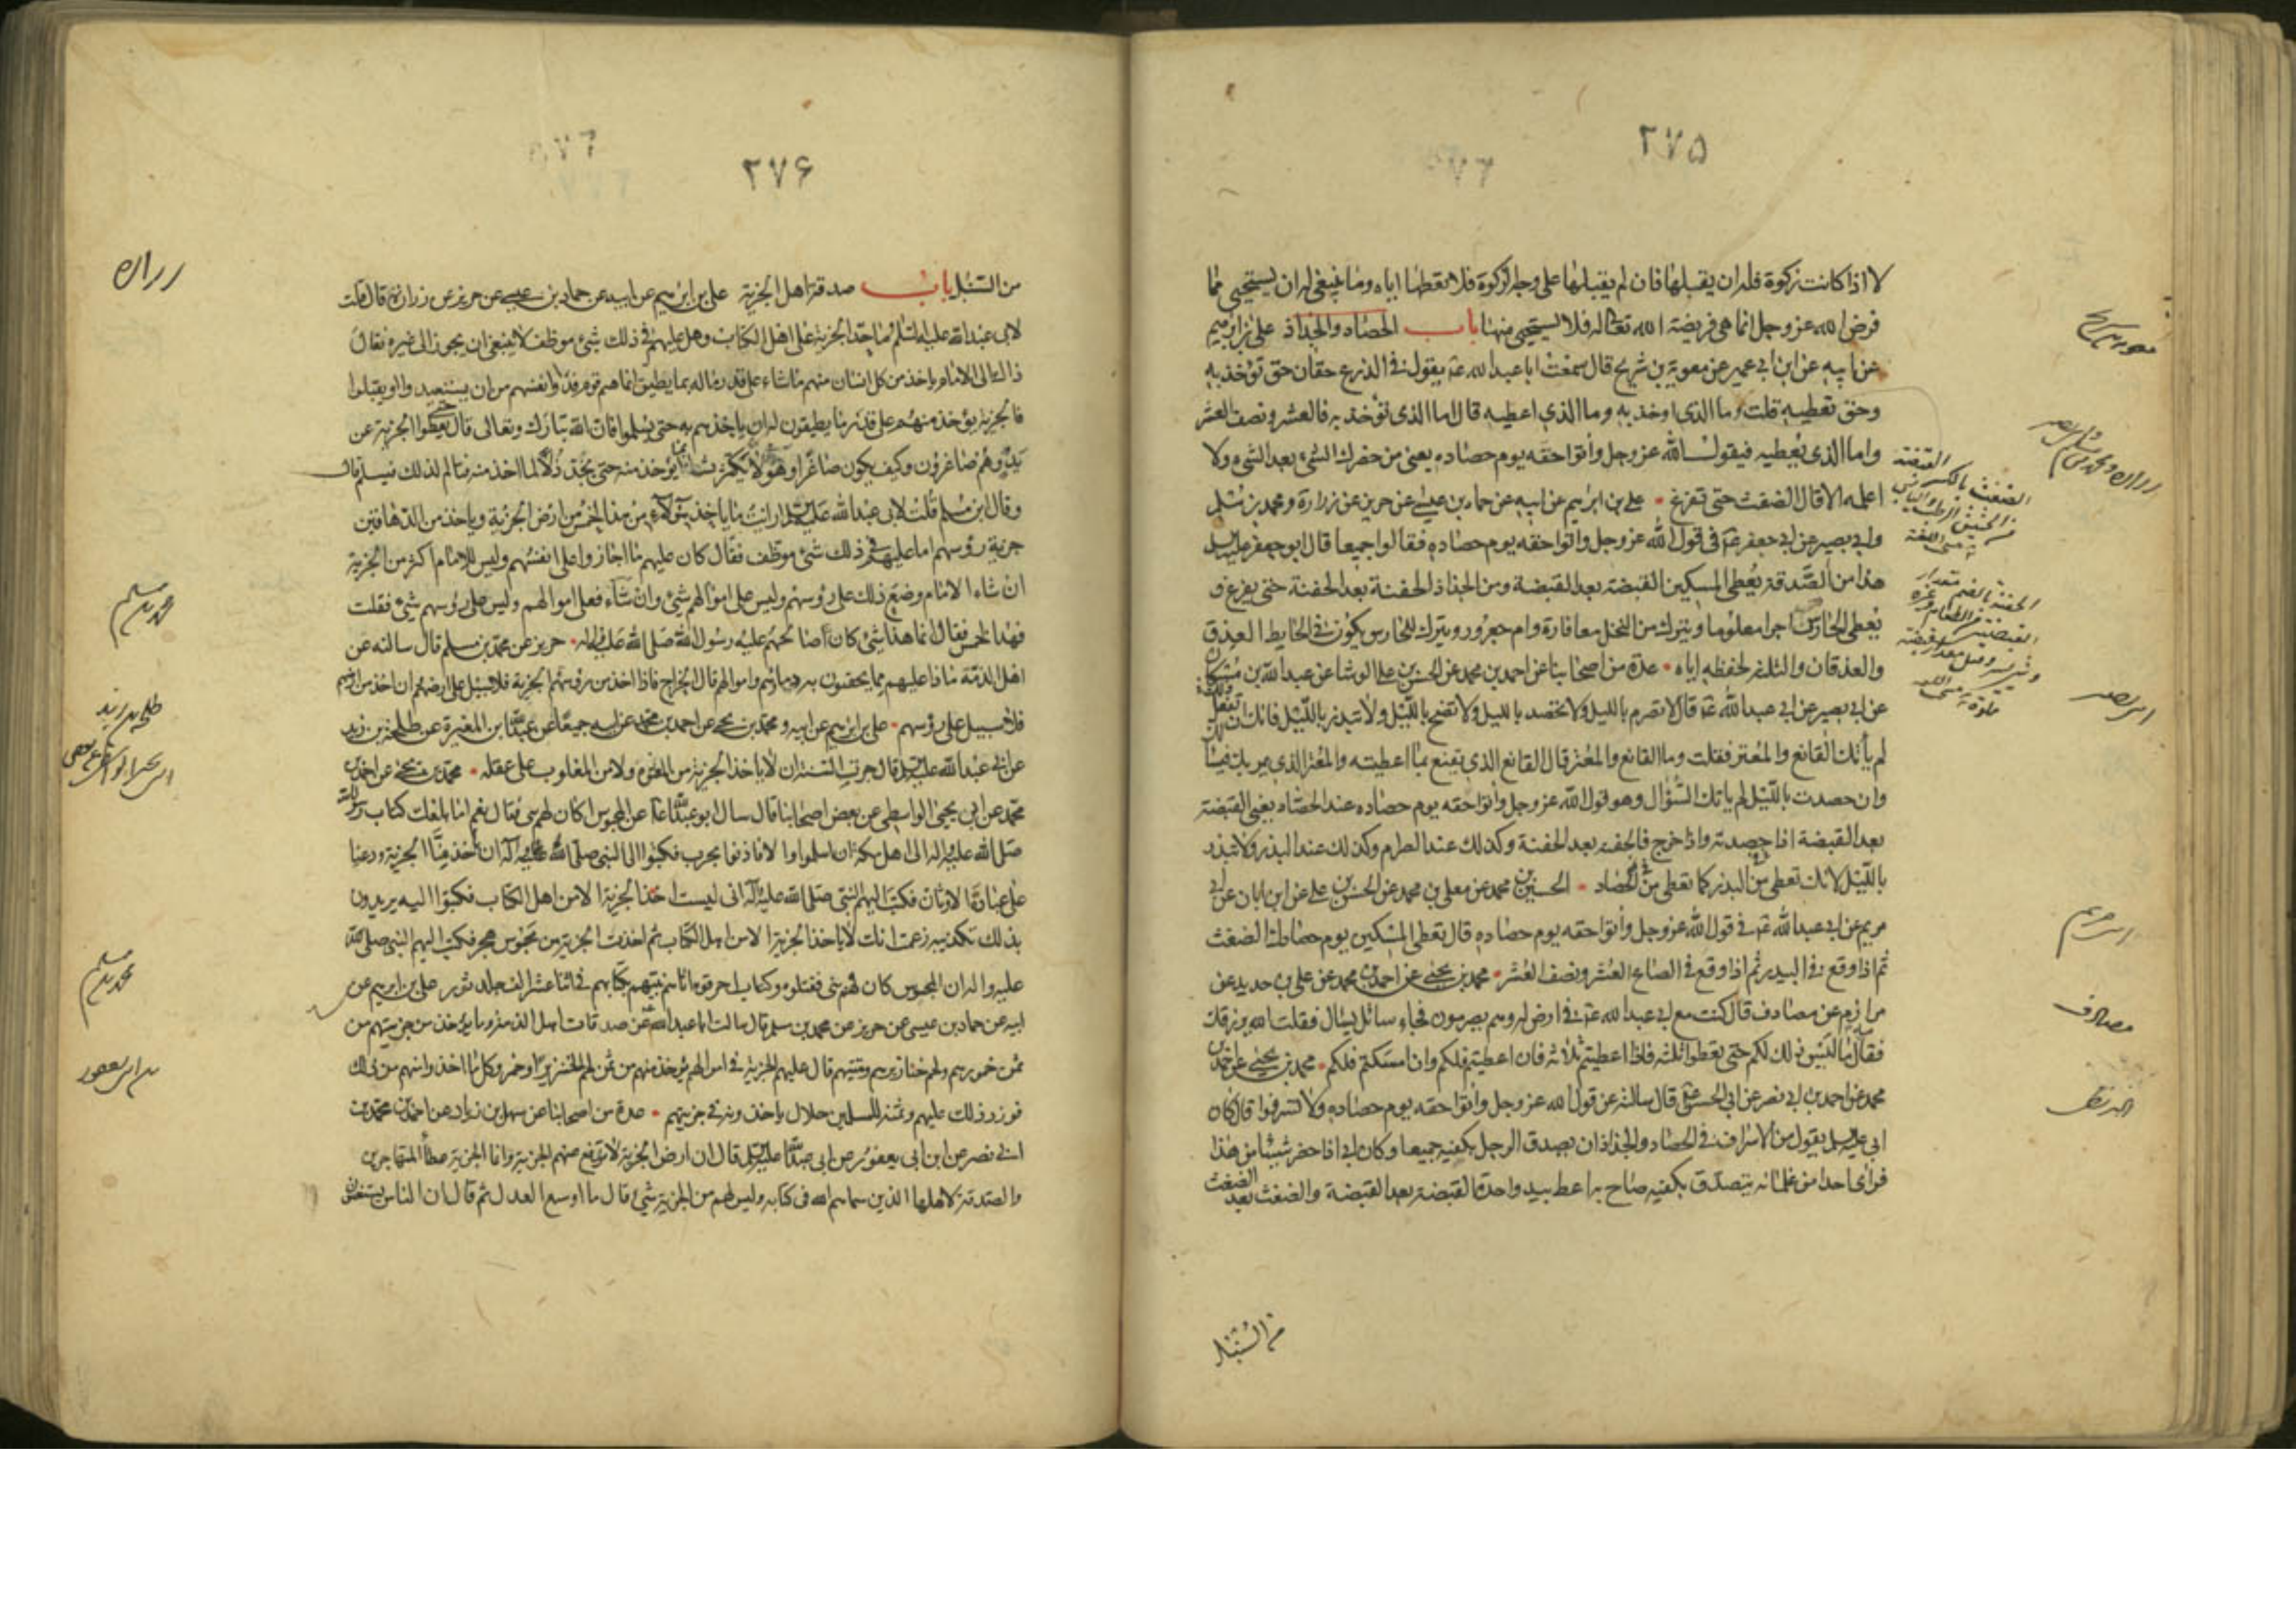 ٢٧٥
لا اذا كانت زكوة فله ان يقبلها فان لم يقبلها على وجه الزكوة فلا تعطها اياه وما ينبغي له ان يستحيي مما
فرض الله عز وجل انما هي فريضة الله تعالى له فلا يستحيي منها باب الحصاد والجذاذ علي بن ابرهيم
عن ابيه عن ابن ابي عمير عن معوية بن شريح قال سمعت ابا عبد الله يقول في الزرع حقان حق تؤخذ به
وحق تعطيه قلت وما الذي اوخذ به وما الذي اعطيه قال اما الذي تؤخذ به فالعشر ونصف العشر
واما الذي تعطيه فيقول الله عز وجل وأتوا حقه يوم حصاده يعني من حضرك الشيء بعد الشيء ولا
اعلمه الا قال الضغث حتى تفرغ علي بن ابرهيم عن ابيه عن حماد بن عيسى عن حريز عن زرارة ومحمد بن مسلم
وابي بصير عن ابي جعفر في قول الله عز وجل واتوا حقه يوم حصاده فقالوا جميعا قال ابو جعفر عليه السلم
هذا من الصدقة يعطي المسكين القبضة بعد القبضة ومن الجذاذ الحفنة بعد الحفنة حتى يفرغ و
يعطي الحارس اجرا معلوما ويترك من النخل معافارة وام جعرور ويترك للحارس يكون في الحايط العذق
والعذقان والثلثة لحفظه اياه عدة من اصحابنا عن احمد بن محمد عن الحسن بن علي الوشا عن عبد الله بن مسكان
عن ابي بصير عن ابي عبد الله قال لا تصرم بالليل ولا تحصد بالليل ولا تضح بالليل ولا تبذر بالليل فانك ان تفعل ذلك
لم يأتك القانع والمعتر فقلت وما القانع والمعتر قال القانع الذي يقنع بما اعطيته والمعتر الذي يمر بك فيسئلك
وان حصدت بالليل لم ياتك السؤال وهو قول الله عز وجل وأتوا حقه يوم حصاده عند الحصاد يعني القبضة
بعد القبضة اذا حصدته واذا خرج فالحفنة بعد الحفنة وكذلك عند الصرام وكذلك عند البذر ولا تبذر
بالليل لانك تعطي من البذر كما تعطي من الحصاد الحسين بن محمد عن معلى بن محمد عن الحسن بن علي عن ابان عن ابي
مريم عن ابي عبد الله في قول الله عز وجل وأتوا حقه يوم حصاده قال تعطي المسكين يوم حصادك الضغث
ثم اذا وقع في البيدر ثم اذا وقع في الصاع العشر ونصف العشر محمد بن يحيى عن احمد بن محمد عن علي بن حديد عن
مرازم عن مصادف قال كنت مع ابي عبد الله في ارض له وهم يصرمون فجاء سائل يسال فقلت الله يرزقك
فقال مه ليس ذلك لكم حتى تعطوا ثلثة فاذا اعطيتم ثلاثه فان اعطيتم فلكم وان امسكتم فلكم محمد بن يحيى عن احمد بن
محمد عن احمد بن ابي نصر عن ابي الحسن قال سالته عن قول الله عز وجل وأتوا حقه يوم حصاده ولا تسرفوا قال كان
ابي يقول من الاسراف في الحصاد والجذاذ ان يصدق الرجل بكفيه جميعا وكان ابي اذا حضر شيئا من هذا
فراى احدا من غلمانه يتصدق بكفيه صاح به اعط بيد واحدة القبضة بعد القبضة والضغث بعد الضغث
من السنبل
معويه بن شريح
زراره ومحمد بن مسلم وابى بصير
الضغث بالكسر القبضة
ابى بصير
ابى مريم
مصادف
٢٧۶
من السنبل باب صدقة اهل الجزية علي بن ابرهيم عن ابيه عن حماد بن عيسى عن حريز عن زرارة قال قلت
لابي عبد الله عليه السلم ما حد الجزية على اهل الكتاب وهل عليهم في ذلك شيء موظف لا ينبغي ان يجوز الى غيره فقال
ذاك الى الامام ياخذ من كل انسان منهم ما شاء على قدر ماله بما يطيق انما هم قوم فدوا انفسهم من ان يستعبدوا او يقتلوا
فالجزية يؤخذ منهم على قدر ما يطيقون له ان ياخذهم به حتى يسلموا فان الله تبارك وتعالى قال حتى يعطوا الجزية عن
يد وهم صاغرون وكيف يكون صاغرا وهو لا يكترث لما يؤخذ منه حتى يجد ذلا لما اخذ منه فتالم لذلك فيسلم قال
وقال ابن مسلم قلت لابي عبد الله ارايت ما ياخذ هؤلاء من هذا الخمس من ارض الجزية وياخذ من الدهاقين
جزية رؤسهم اما عليهم في ذلك شيء موظف فقال كان عليهم ما اجازوا على انفسهم وليس للامام اكثر من الجزية
ان شاء الامام وضع ذلك على رؤسهم وليس على اموالهم شيء وان شاء فعلى اموالهم وليس على رؤسهم شيء فقلت
فهذا الخمس فقال انما هذا شيء كان صالحهم عليه رسول الله صلى الله عليه واله حريز عن محمد بن مسلم قال سالته عن
اهل الذمة ماذا عليهم مما يحقنون به دماءهم واموالهم قال الخراج فاذا اخذ من رؤسهم الجزية فلا سبيل على ارضهم وان اخذ من ارضهم
فلا سبيل على رؤسهم علي بن ابرهيم عن ابيه ومحمد بن يحيى عن احمد بن محمد عن ابيه جميعا عن عبد الله بن المغيرة عن طلحة بن زيد
عن ابي عبد الله قال جرت السنة ان لا ياخذ الجزية من المعتوه ولا من المغلوب على عقله محمد بن يحيى عن احمد بن
محمد عن ابي يحيى الواسطي عن بعض اصحابنا قال سال ابو عبد الله عن المجوس اكان لهم نبي فقال نعم اما بلغك كتاب رسول الله
صلى الله عليه واله الى اهل مكة ان اسلموا والا فاذنوا بحرب فكتبوا الى النبي صلى الله عليه وآله ان خذ منا الجزية ودعنا
على عبادة الاوثان فكتب اليهم النبي صلى الله عليه وآله اني لست اخذ الجزية الا من اهل الكتاب فكتبوا اليه يريدون
بذلك تكذيبه زعمت انك لا ياخذ الجزية الا من اهل الكتاب ثم اخذت الجزية من مجوس هجر فكتب اليهم النبي صلى الله
عليه واله ان المجوس كان لهم نبي فقتلوه وكتاب احرقوه اتاهم نبيهم بكتابهم في اثنا عشر الف جلد ثور علي بن ابرهيم عن
ابيه عن حماد بن عيسى عن حريز عن محمد بن مسلم قال سالت ابا عبد الله عن صدقات اهل الذمة وما يؤخذ من جزيتهم من
ثمن خمورهم ولحم خنازيرهم وميتتهم قال عليهم الجزية في اموالهم يؤخذ منهم من ثمن لحم الخنزير او خمر وكل ما اخذوا منهم من ذلك
فوزر ذلك عليهم وثمنه للمسلمين حلال ياخذونه في جزيتهم عدة من اصحابنا عن سهل بن زياد عن احمد بن محمد بن
ابي نصر عن ابن ابي يعفور عن ابي عبد الله قال ان ارض الجزية لا ترفع عنهم الجزية وانما الجزية عطاء المهاجرين
والصدقة لاهلها الذين سماهم الله في كتابه وليس لهم من الجزية شيء قال ما اوسع العدل ثم قال ان الناس يستغنون
زراره
محمد بن مسلم
طلحه بن زيد
محمد بن مسلم
ابن ابى يعفور